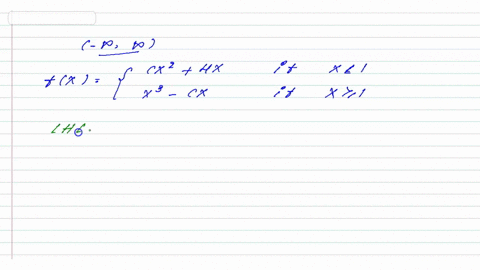 (-∞, ∞)
f(x) = { cx² + 4x if x < 1
x³ - cx if x ≥ 1
LHL